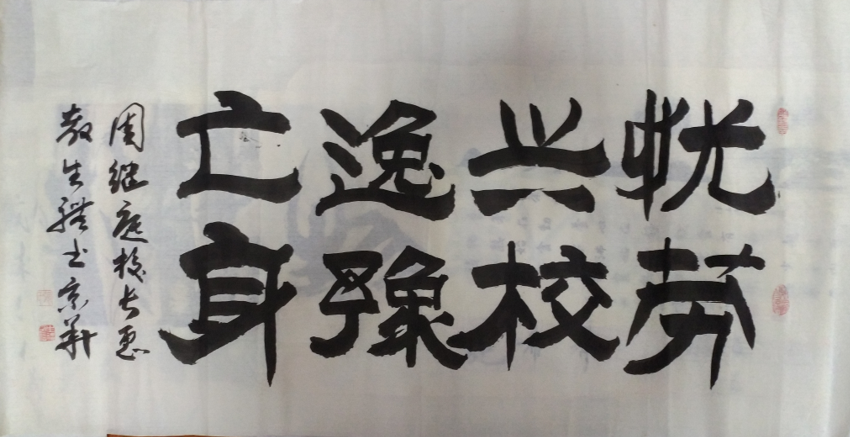 忧劳
兴校
逸豫
亡身
周继庭校长惠
教生书京华